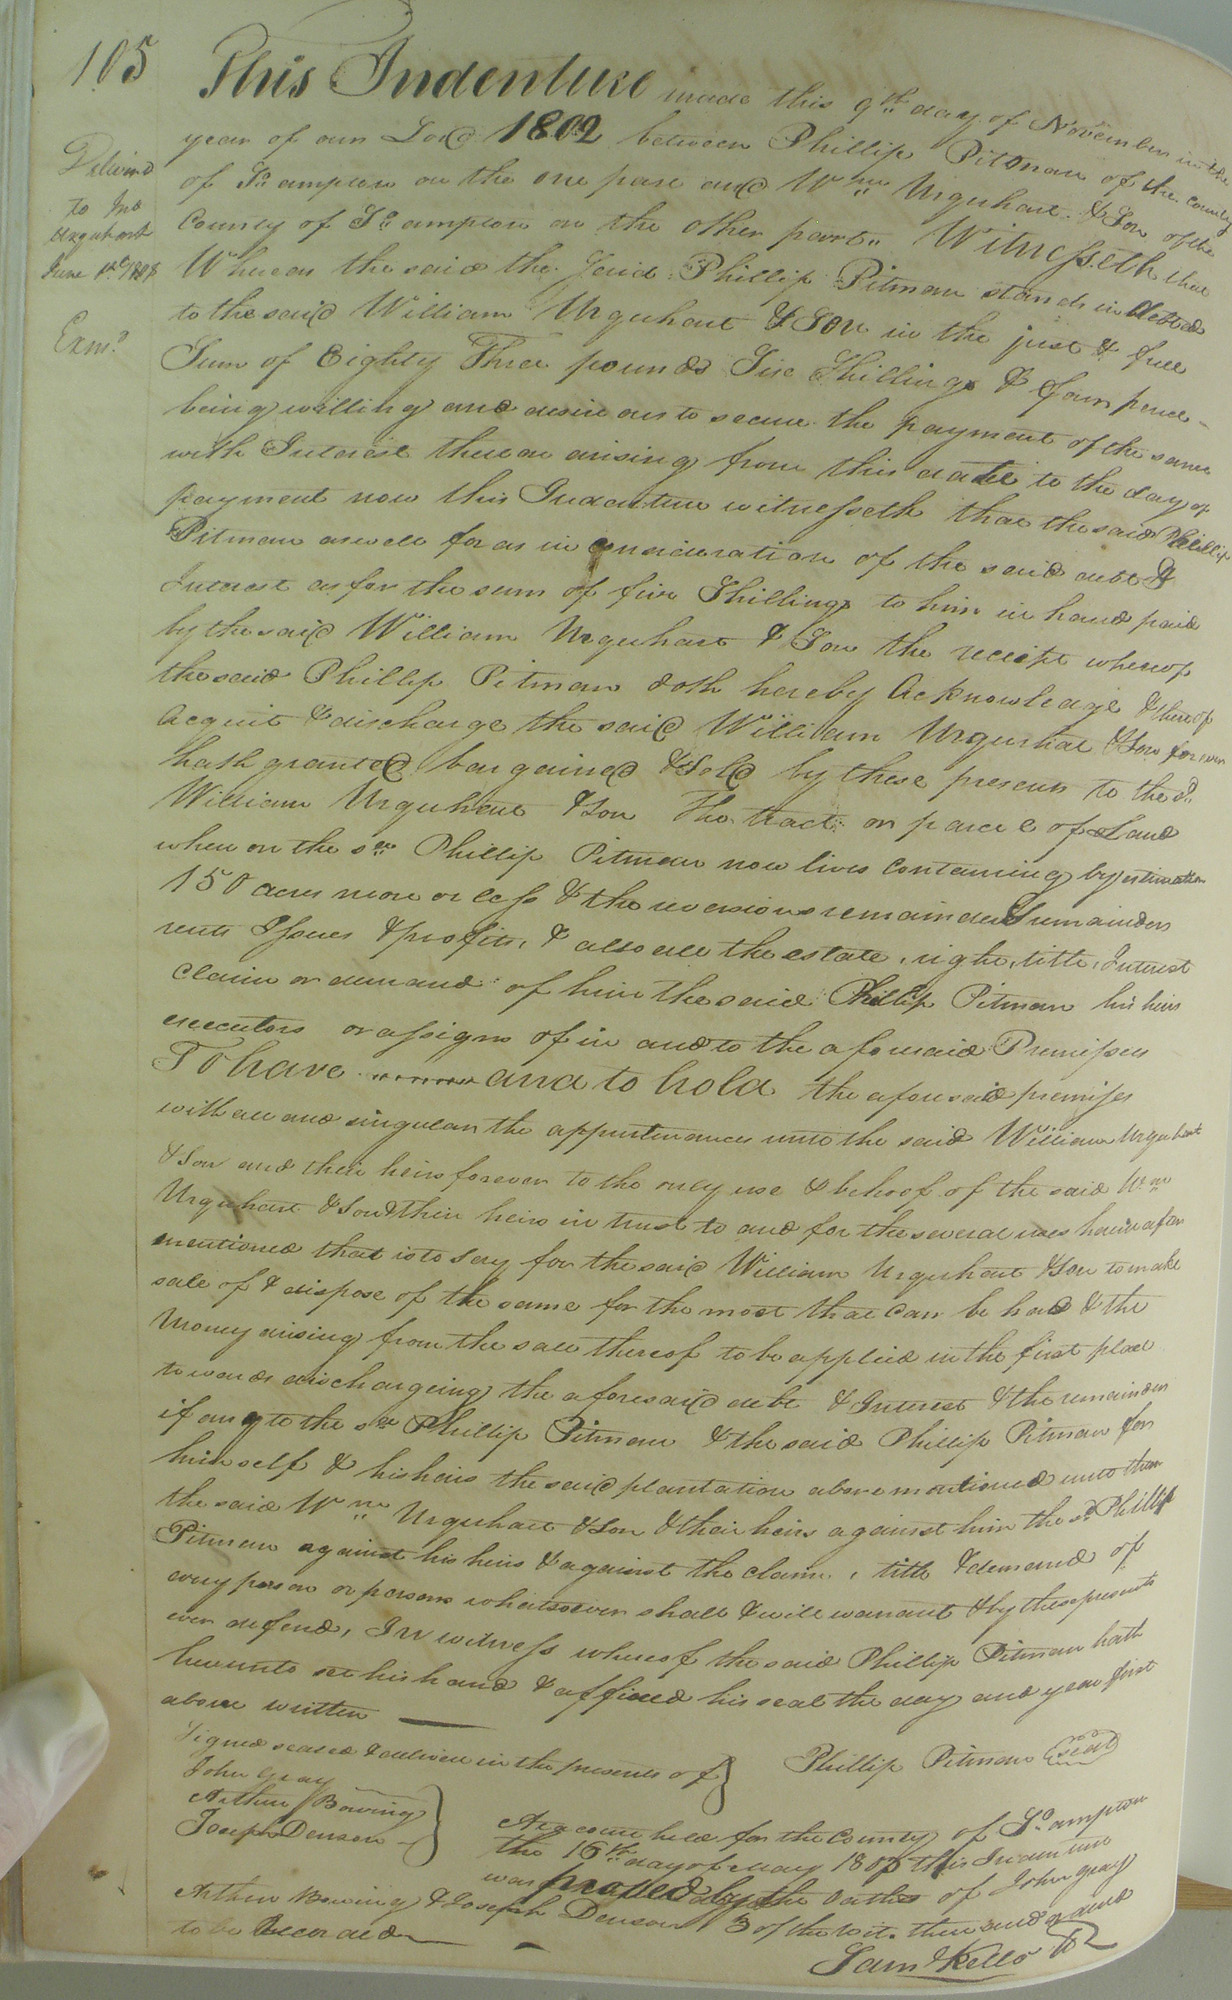 105
Deliverd
to Jno
Urquhart
June
Exmd
This Indenture made this 9th day of November in the
year of our Lord 1802 between Phillip Pitman of the County
of So.ampton on the one part and Wm Urquhart & Son of the
County of So.ampton on the other part Witnesseth that
Whereas the said the said Phillip Pitman stands indebted
to the said William Urquhart & Son in the just & full
Sum of Eighty Three pounds Six Shillings & four pence
being willing and desirous to secure the payment of the same
with Interest thereon arising from this date to the day of
payment now this Indenture witnesseth that the said Phillip
Pitman aswell for as in consideration of the said debt &
Interest as for the sum of five Shillings to him in hand paid
by the said William Urquhart & Son the receipt whereof
the said Phillip Pitman doth hereby Acknowledge & thereof
Acquit & discharge the said William Urquhat & Son forever
hath granted bargained & Sold by these presents to the sd.
William Urquhart & Son The tract or parcel of Land
where on the sd Phillip Pitman now lives containing by estimation
150 acres more or less & the reversions remainder & remainders
rents Issues & profits, & also all the estate, right, title, Interest
claim or demand of him the said Phillip Pitman his heirs
executors or assigns of in and to the aforesaid Premisses
To have and to hold the aforesaid premises
with all and singular the appurtenances unto the said William Urquhart
& Son and their heirs forever to the only use & behoof of the said Wm
Urquhart & Son & their heirs in trust to and for the several uses herein after
mentioned that is to Say for the said William Urquhart & Son to make
sale of & dispose of the same for the most that can be had & the
Money arising from the sale thereof to be applied in the first place
towards dischargeing the aforesaid debt & Interest & the remainder
if any to the sd Phillip Pitman & the said Phillip Pitman for
himself & his heirs the said plantation above mentioned unto them
the said Wm Urquhart & Son & their heirs against him the sd Phillip
Pitman against his heirs & against the claim, title & demand of
every person or persons whatsoever shall & will warrant & by these presents
ever defend, In witness whereof the said Phillip Pitman hath
hereunto set his hand & affixed his seal the day and year first
above written
Signed sealed & delivered in the presents of } Phillip Pitman seal
John Gray
Arthur Bowing
Joseph Denson
At a court held for the County of So.ampton
the 16th day of May 180 this Indenture
was proved by the oaths of John Gray
Arthur Bowing & Joseph Denson 3 of the wit. thereto and
to be Recorded
Saml Kello